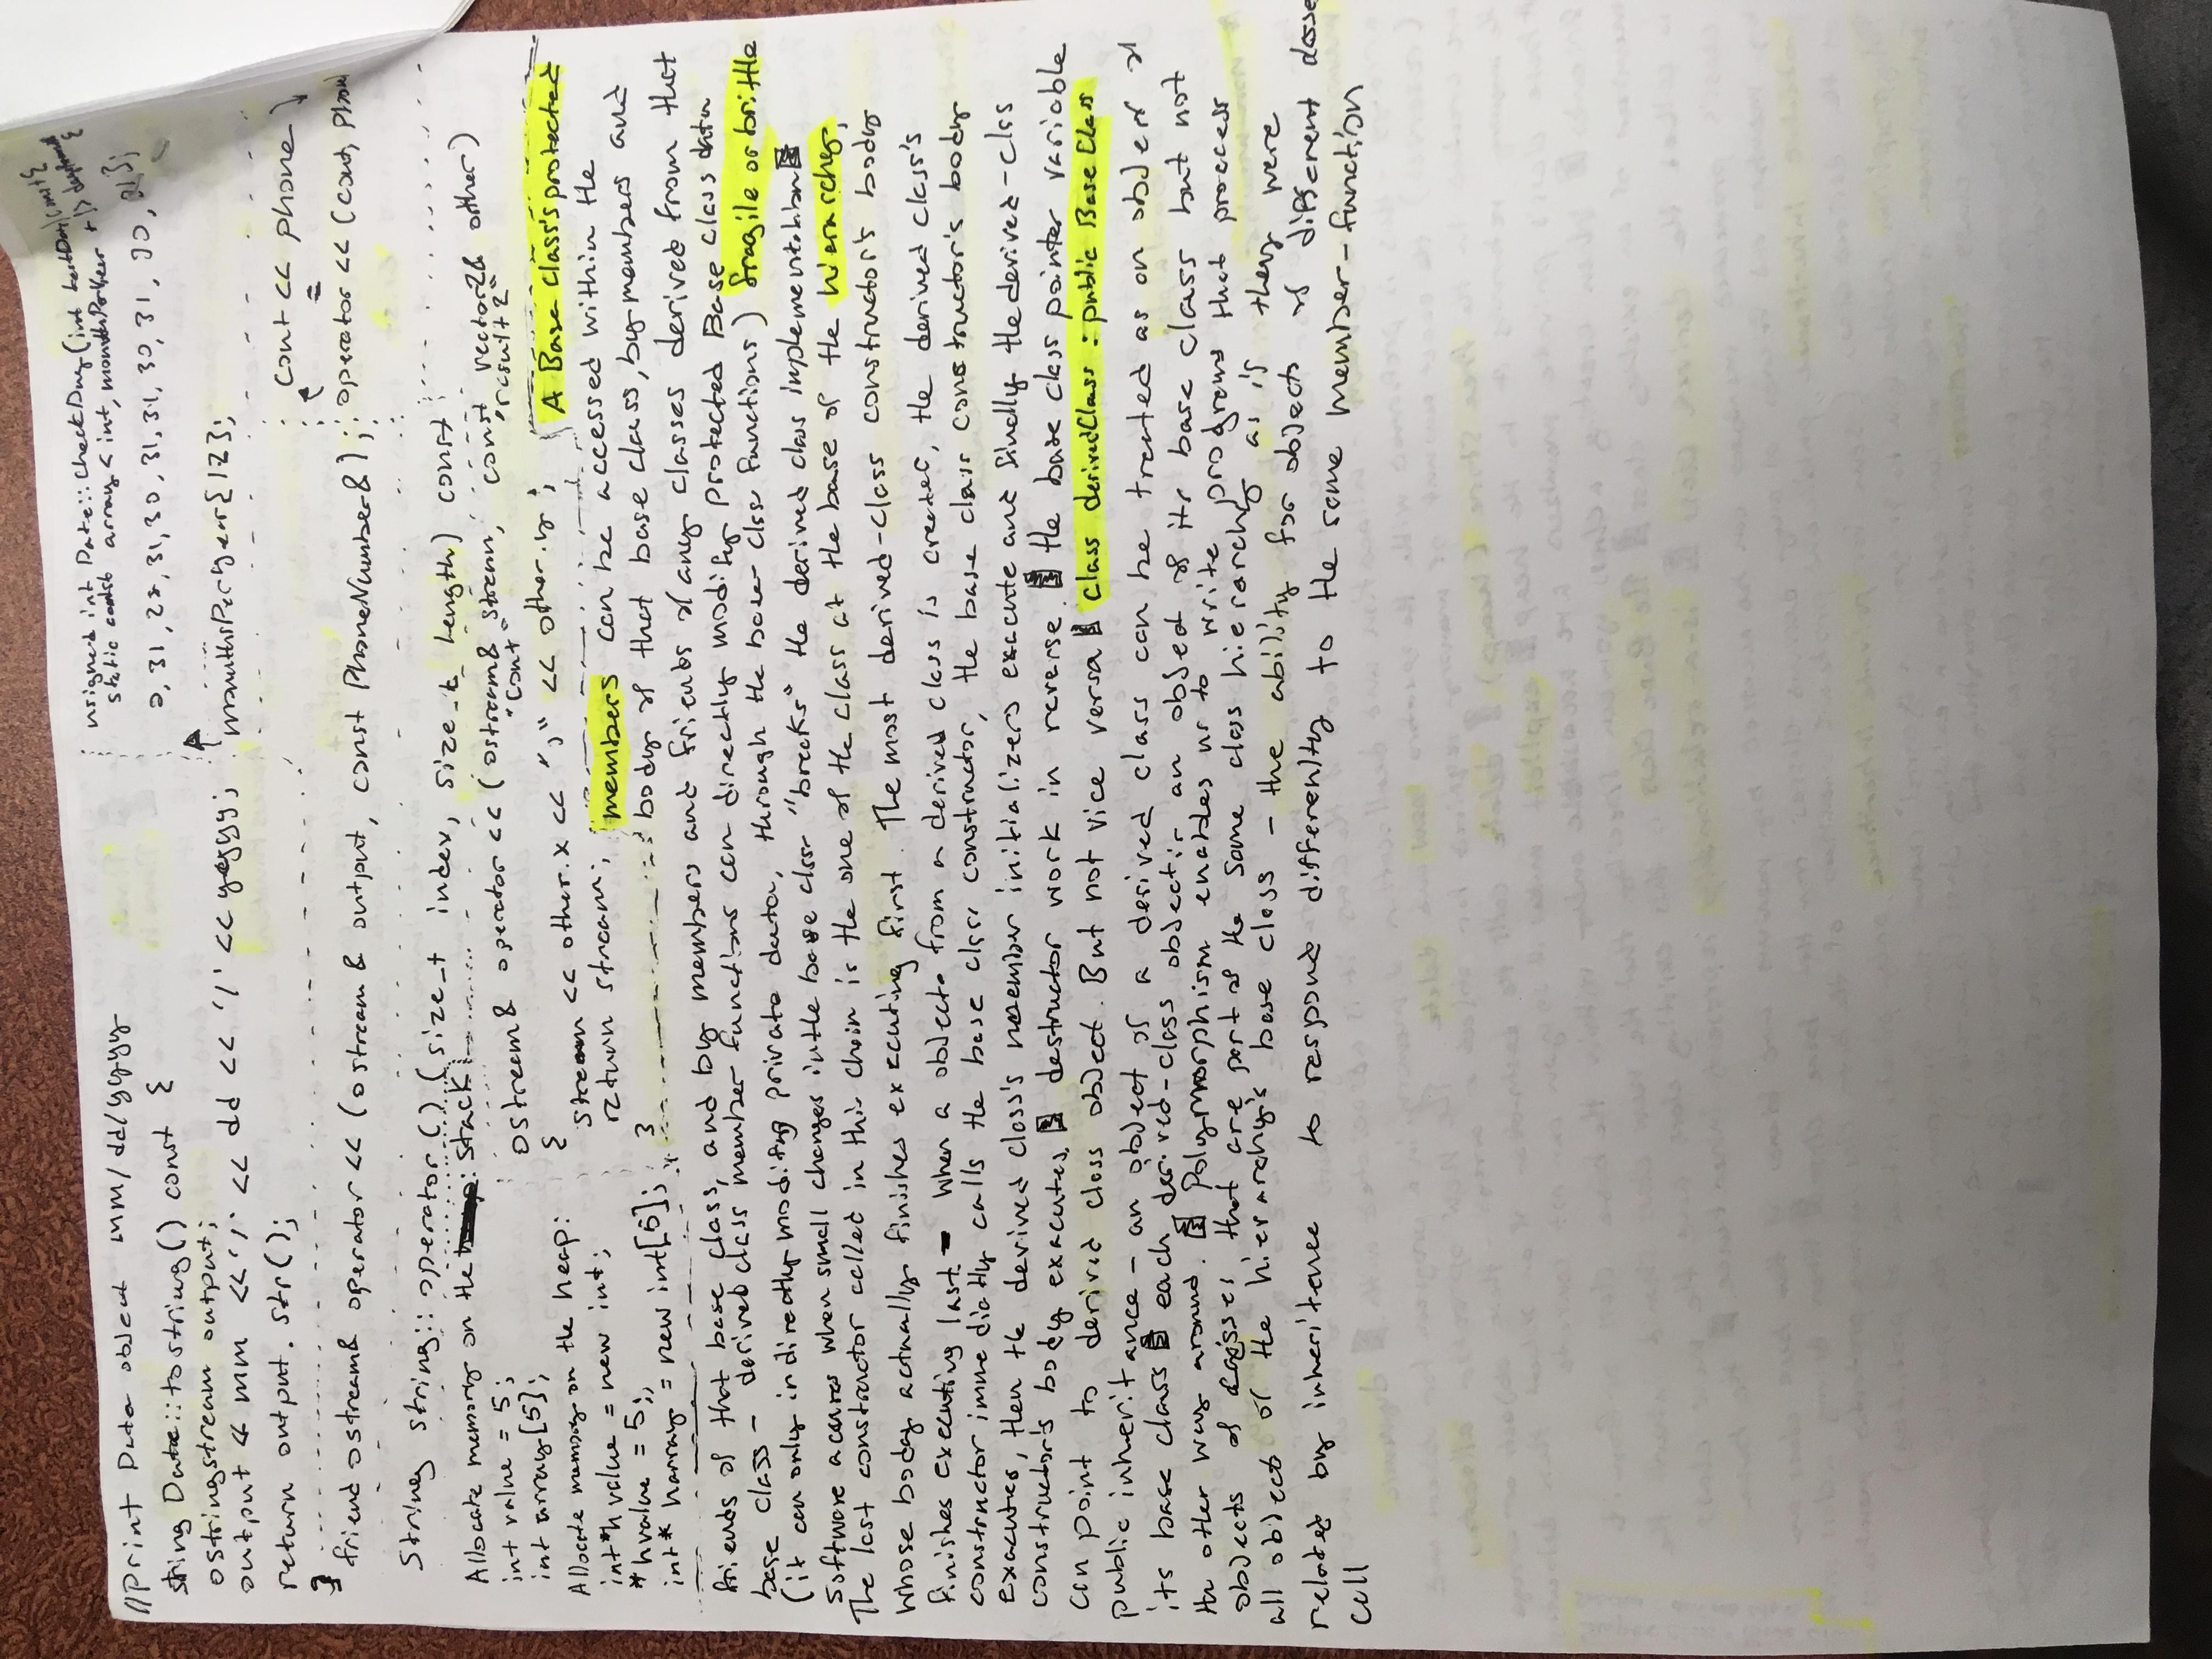 //print Date object mm/dd/yyyy
string Date::tostring() const {
ostringstream output;
output << mm << '/' << dd << '/' << yyyy;
return output.str();
}
unsigned int Date::checkDay(int
static const array < int, monthsPerYear + 1>
0, 31, 28, 31, 30, 31, 30, 31, 31, 30, 31, 30, 31};
monthsPerYear{12};
friend ostream& operator << (ostream& output, const PhoneNumber&);
cout << phone
operator << (cout, phon
String String::operator()(size_t index, size_t length) const
Allocate memory on the stack:
int value = 5;
int array[5];
Allocate memory on the heap:
int* hvalue = new int;
*hvalue = 5;
int* harray = new int[5];
ostream& operator << (ostream& stream, const vector2& other)
"cout" "result2"
{
stream << other.x << "," << other.y;
return stream;
}
A Base class's protected
members can be accessed within the
body of that base class, by members and
friends of that base class, and by members and friends of any classes derived from that
base class - derived class member functions can directly modify protected Base class data
(it can only indirectly modifing private data, through the base class functions) fragile or brittle
software accures when small changes in the base class "breaks" the derived class implementation
The last constructor called in this chain is the one of the class at the base of the hierarchy,
whose body actually finishes executing first. The most derived-class constructor's body
finishes executing last - When a objects from a derived class is created, the derived class's
constructor immediatly calls the base class constructor, the base class constructor's body
executes, then the derived class's member initializers execute and finally the derived-class
constructor's body executes. destructor work in reverse. the base class pointer variable
can point to derived class object. But not vice versa class derivedClass : public BaseClass
public inheritance - an object of a derived class can be treated as an object of
its base class each derived-class object is an object of its base class but not
the other way around. Polymorphism enables us to write programs that process
objects of classes that are part of the same class hierarchy as if they were
all objects of the hierarchy's base class - the ability for objects of different classe
related by inheritence to respond differently to the same member-function
call